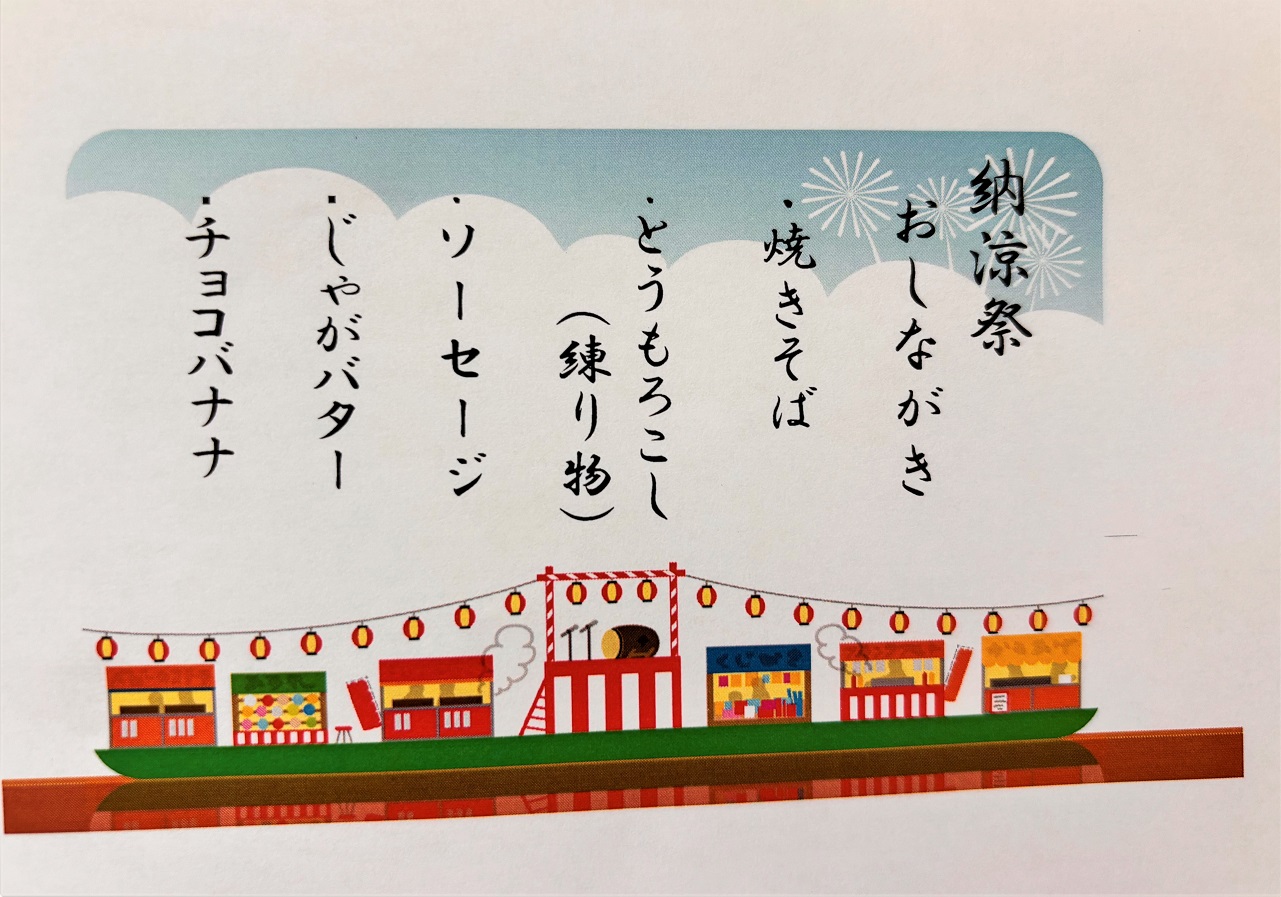 納涼祭
おしながき
・焼きそば
・とうもろこし
（練り物）
・ソーセージ
・じゃがバター
・チョコバナナ